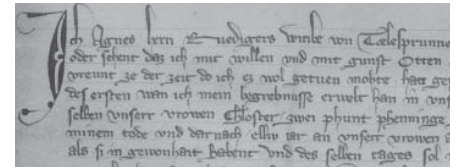 Ich Agnes hern Ruedigers witibe von Tœlesprunne
oder sehent daz ich mit willen vnd mit gunst Otten
vreunt ze der zeit do ich ez wol getuen mohte han ges
des ersten wan ich mein begrebnusse erwelt han in vns
selben vnserr vrowen Chloster zwei phunt phenninge
minem tode vnd darnach elliv iar an vnserr vrowen
als si in gewonhait habent vnd des selben tages sol